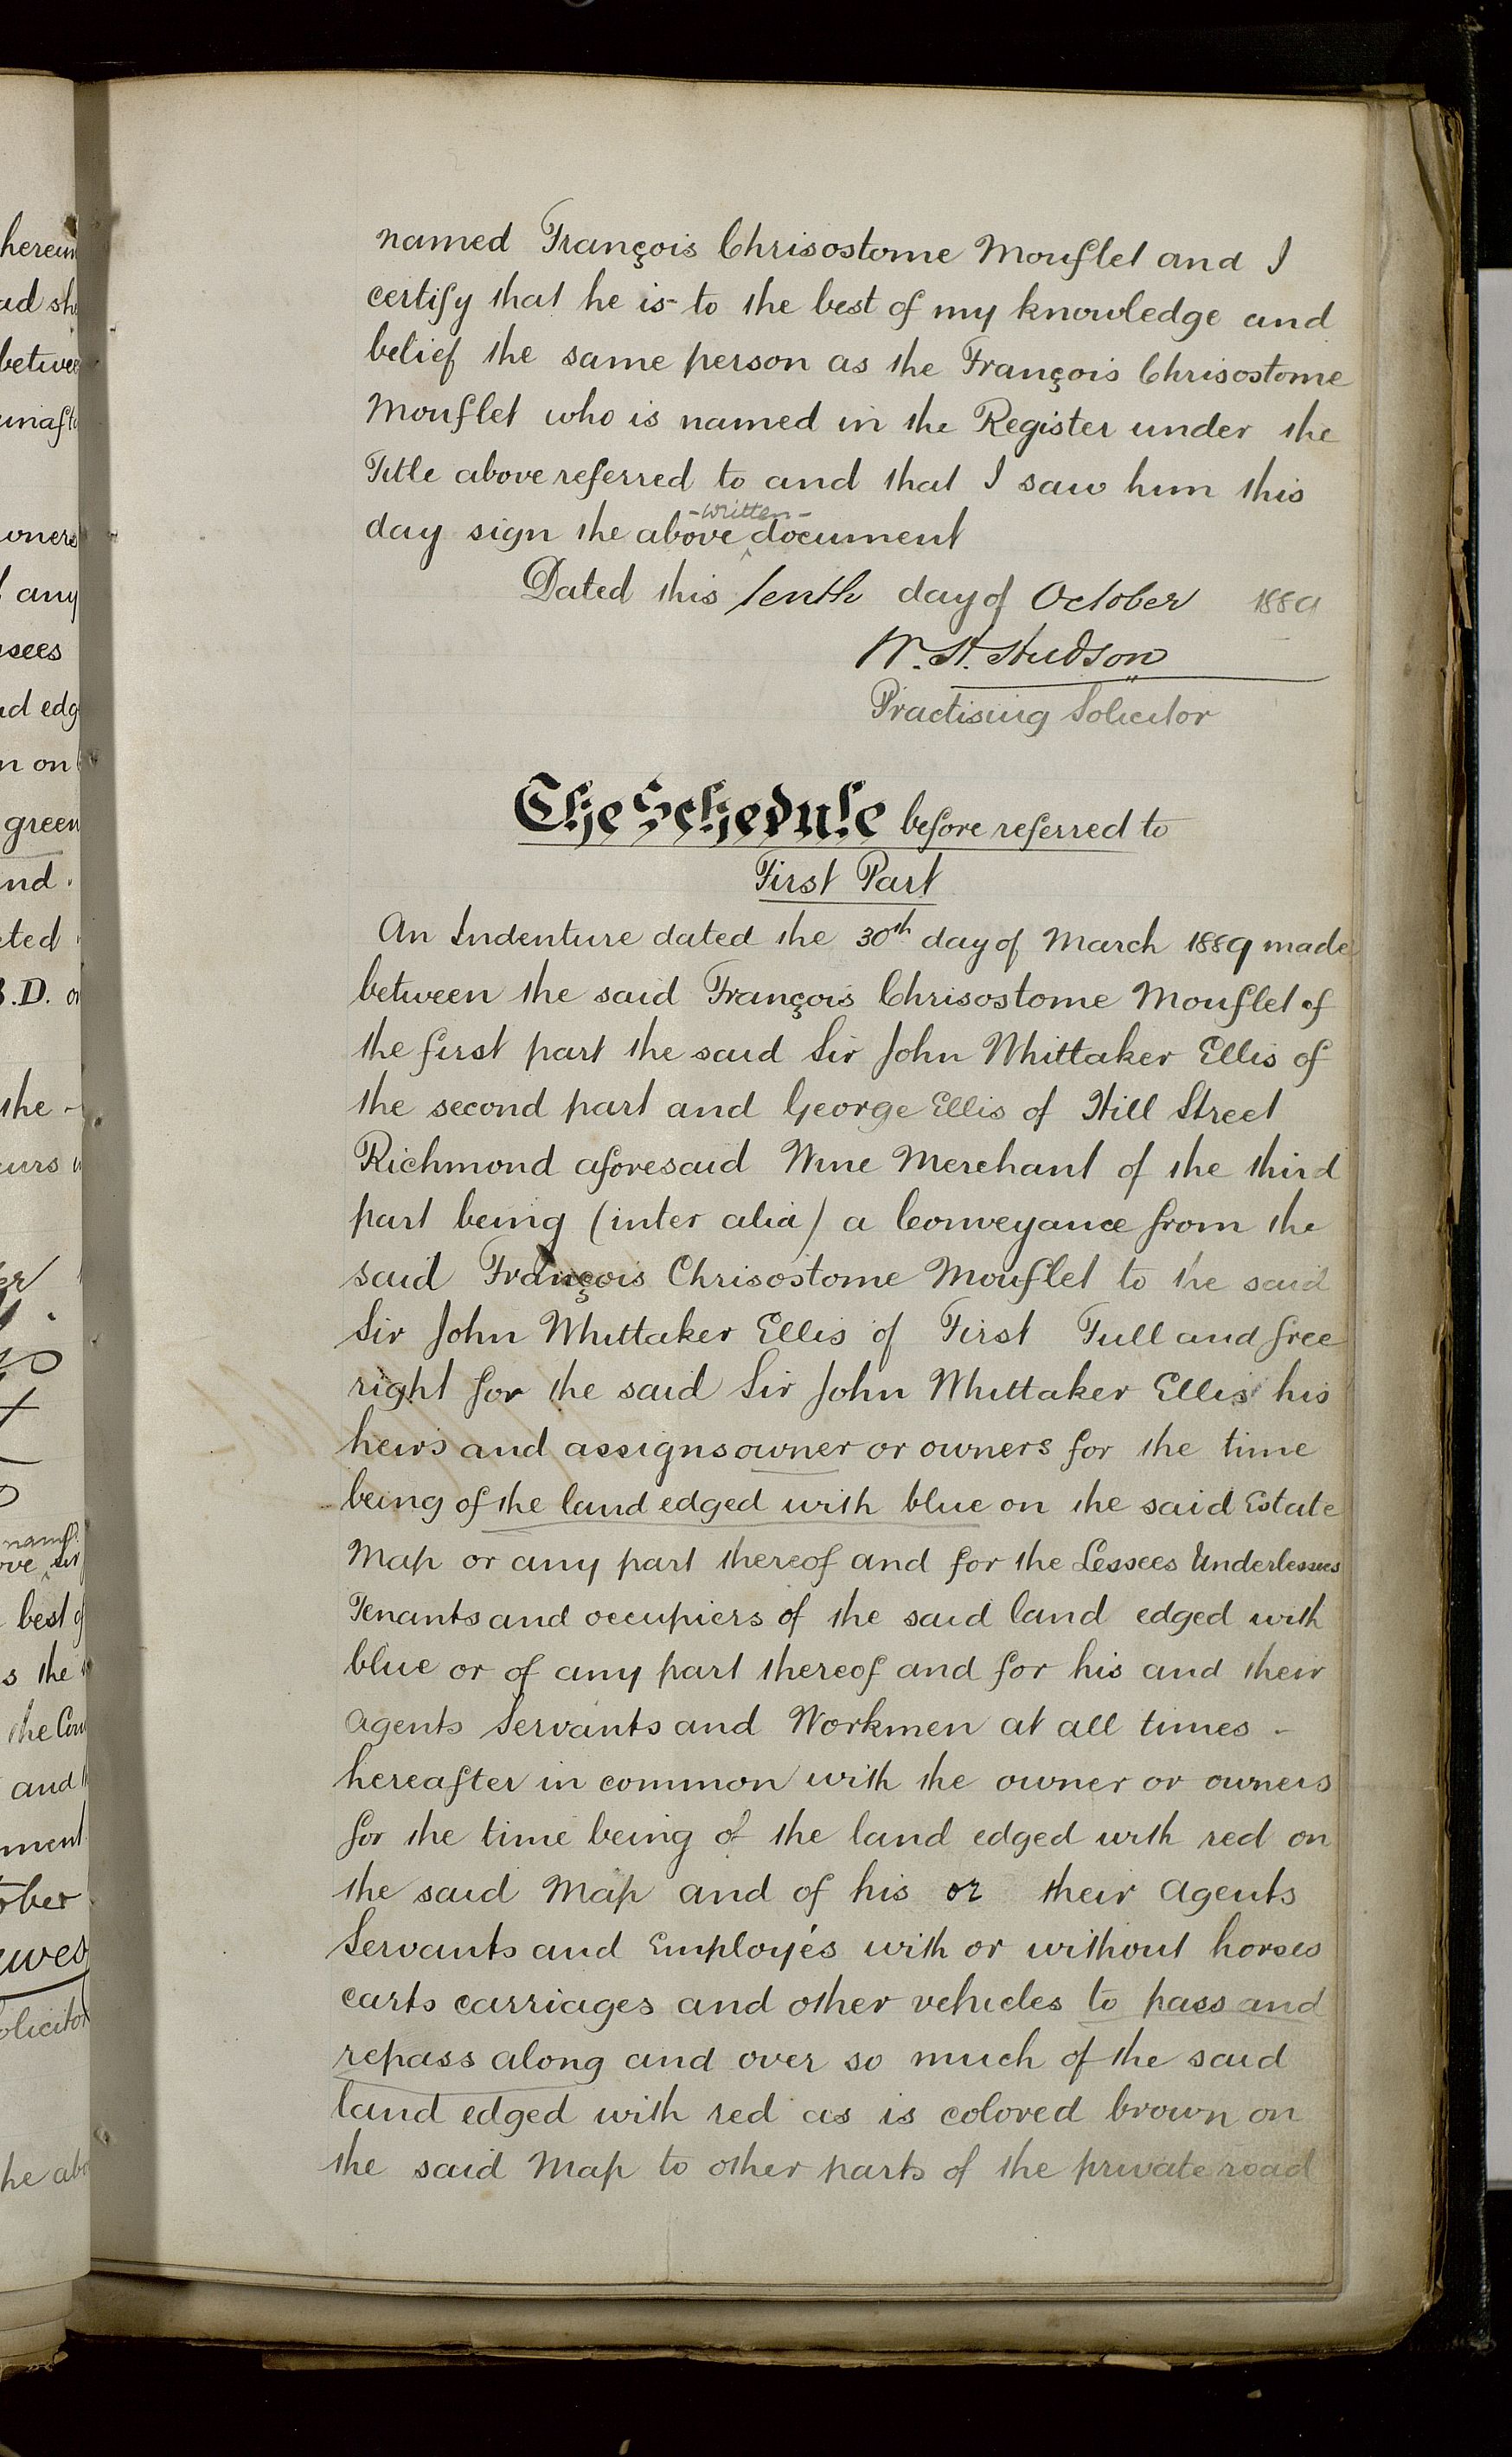 named François Chrisostome Mouflet and I
certify that he is to the best of my knowledge and
belief the same person as the François Chrisostome
Mouflet who is named in the Register under the
Title above referred to and that I saw him this
-written-
day sign the above document
Dated this tenth day of October 1889
W. H. Hudson
Practising Solicitor
The Schedule before referred to
First Part
An Indenture dated the 30th day of March 1889 made
between the said François Chrisostome Mouflet of
the first part the said Sir John Whittaker Ellis of
the second part and George Ellis of Hill Street
Richmond aforesaid Wine Merchant of the third
part being (inter alia) a Conveyance from the
said François Chrisostome Mouflet to the said
Sir John Whittaker Ellis of First Full and free
right for the said Sir John Whittaker Ellis his
heirs and assigns owner or owners for the time
being of the land edged with blue on the said Estate
Map or any part thereof and for the Lessees Underlessees
Tenants and occupiers of the said land edged with
blue or of any part thereof and for his and their
agents Servants and Workmen at all times -
hereafter in common with the owner or owners
for the time being of the land edged with red on
the said Map and of his or their agents
Servants and Employés with or without horses
carts carriages and other vehicles to pass and
repass along and over so much of the said
land edged with red as is colored brown on
the said Map to other parts of the private road